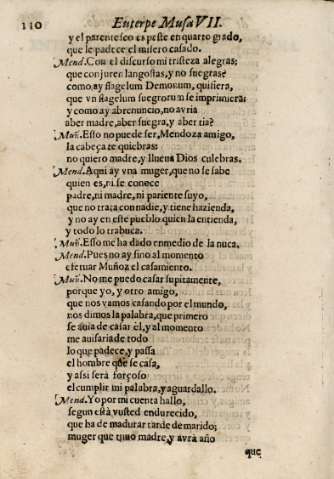 110 Euterpe Musa VII.
y el parentesco es peste en quarto grado,
que le padece el misero casado.
Mend. Con el discurso mi tristeza alegras:
que conjuren langostas, y no suegras?
como, ay flagelum Demonum, quisiera,
que vn flagelum suegrorum se imprimiera:
y como ay abrenuncio, no avria
aber madre, aber suegra, y aber tia?
Muñ. Esso no puede ser, Mendoza amigo,
la cabeça te quiebras:
no quiero madre, y llueua Dios culebras.
Mend. Aqui ay vna muger, que no se sabe
quien es, ni se conoce
padre, ni madre, ni pariente suyo,
que no trata con nadie, y tiene hazienda,
y no ay en este pueblo quien la entienda,
y todo lo trabuca.
Muñ. Esso me ha dado en medio de la nuca.
Mend. Pues no ay sino al momento
efetuar Muñoz el casamiento.
Muñ. No me puedo casar supitamente,
porque yo, y otro amigo,
que nos vamos casando por el mundo,
nos dimos la palabra, que primero
se auia de casar èl, y al momento
me auisaria de todo
lo que padece, y passa
el hombre que se casa,
y assi serà forçoso
el cumplir mi palabra, y aguardallo.
Mend. Yo por mi cuenta hallo,
segun està vusted endurecido,
que ha de madurar tarde de marido;
muger que tuuo madre, y avrà año
que